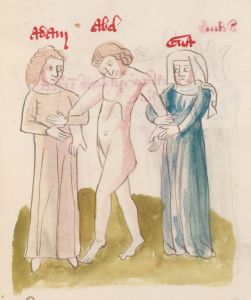 Adam
Abel
Eua